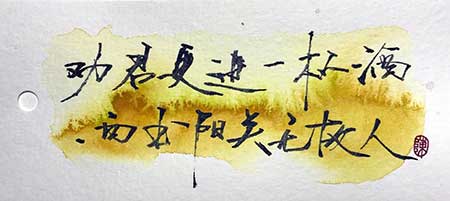 劝君更进一杯酒
西出阳关无故人